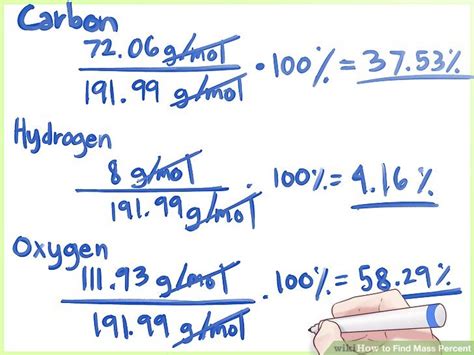 Carbon
72.06 g/mol
191.99 g/mol
· 100% = 37.53%
Hydrogen
8 g/mol
191.99 g/mol
· 100% = 4.16%
Oxygen
111.93 g/mol
191.99 g/mol
· 100% = 58.29%
wikiHow to Find Mass Percent